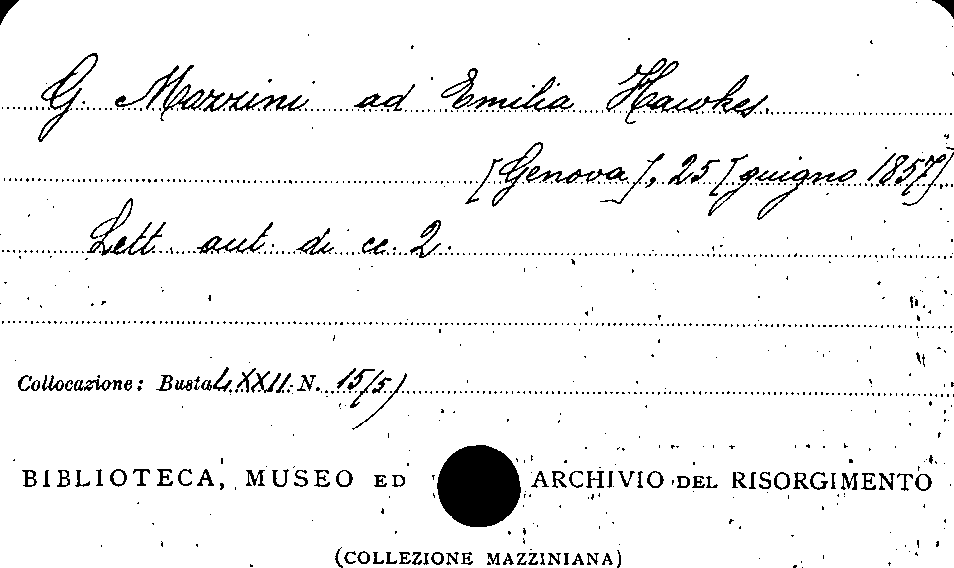 G. Mazzini ad Emilia Hawkes.
[Genova], 25 [giugno 1857].
Lett. aut. di cc. 2.
Collocazione: Busta LXXII N. 15(5)
BIBLIOTECA, MUSEO ED ARCHIVIO DEL RISORGIMENTO
(COLLEZIONE MAZZINIANA)